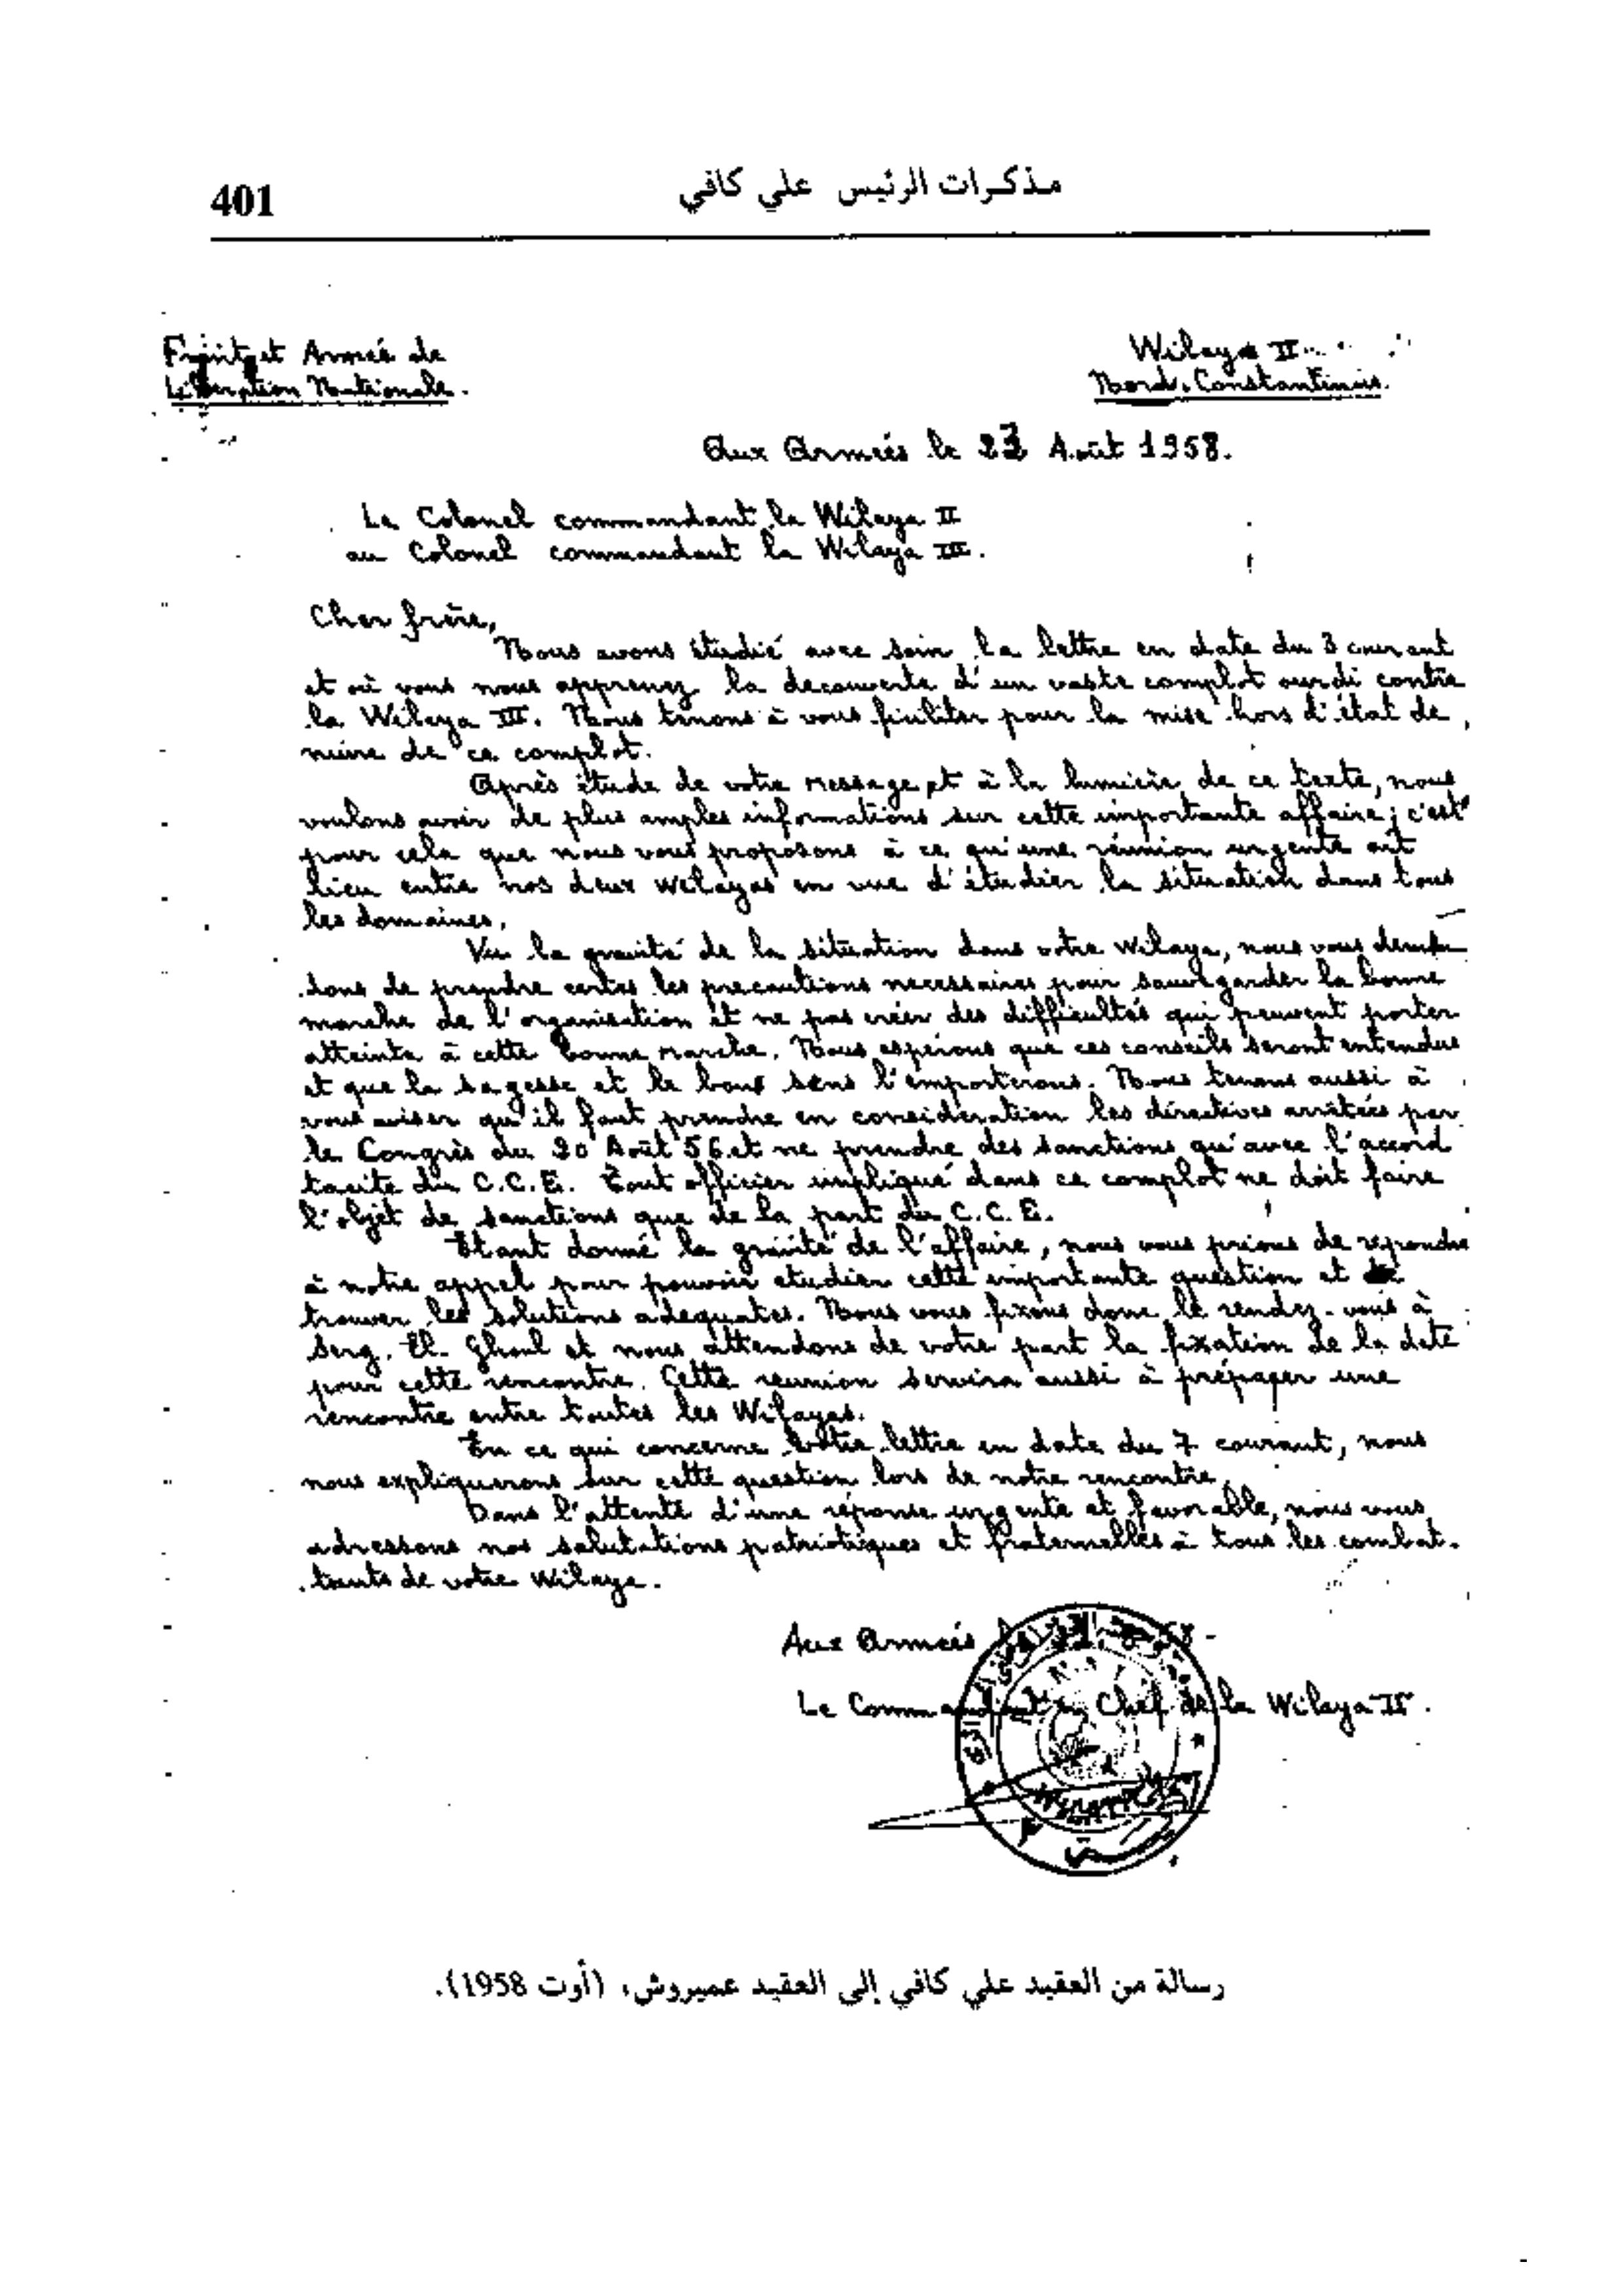 401
مذكرات الرئيس علي كافي
Front et Armée de
Libération Nationale.
Wilaya II
Nord-Constantinois.
Aux Armées le Août 1958.
Le Colonel commandant la Wilaya II
au Colonel commandant la Wilaya III.
Cher frère,
Nous avons étudié avec soin la lettre en date du 3 courant
et où vous nous apprenez la decouverte d'un vaste complot ourdi contre
la Wilaya III. Nous tenons à vous féliciter pour la mise hors d'état de
nuire de ce complot.
Après étude de votre message et à la lumière de ce texte, nous
voulons avoir de plus amples informations sur cette importante affaire; c'est
pour cela que nous vous proposons à ce qu'une réunion urgente ait
lieu entre nos deux wilayas en vue d'étudier la situation dans tous
les domaines.
Vu la gravité de la situation dans votre wilaya, nous vous deman-
dons de prendre certes les precautions necessaires pour sauvegarder la bonne
marche de l'organisation et ne pas créer des difficultés qui peuvent porter
atteinte à cette bonne marche. Nous espérons que ces conseils seront entendus
et que la sagesse et le bon sens l'emporterons. Nous tenons aussi à
vous aviser qu'il faut prendre en considération les directives arrêtées par
le Congrès du 20 Août 56 et ne prendre des sanctions qu'avec l'accord
tacite du C.C.E. Tout officier impliqué dans ce complot ne doit faire
l'objet de sanctions que de la part du C.C.E.
Etant donné la gravité de l'affaire, nous vous prions de repondre
à notre appel pour pouvoir etudier cette importante question et
trouver les solutions adequates. Nous vous fixons donc le rendez-vous à
Serg. El. Ghoul et nous attendons de votre part la fixation de la date
pour cette rencontre. Cette reunion servira aussi à préparer une
rencontre entre toutes les Wilayas.
En ce qui concerne votre lettre en date du 7 courant, nous
nous expliquerons sur cette question lors de notre rencontre.
Dans l'attente d'une réponse urgente et favorable, nous vous
adressons nos salutations patriotiques et fraternelles à tous les combat-
tants de votre Wilaya.
Aux Armées
Le Commandant en Chef de la Wilaya II.
رسالة من العقيد علي كافي إلى العقيد عميروش، (أوت 1958).